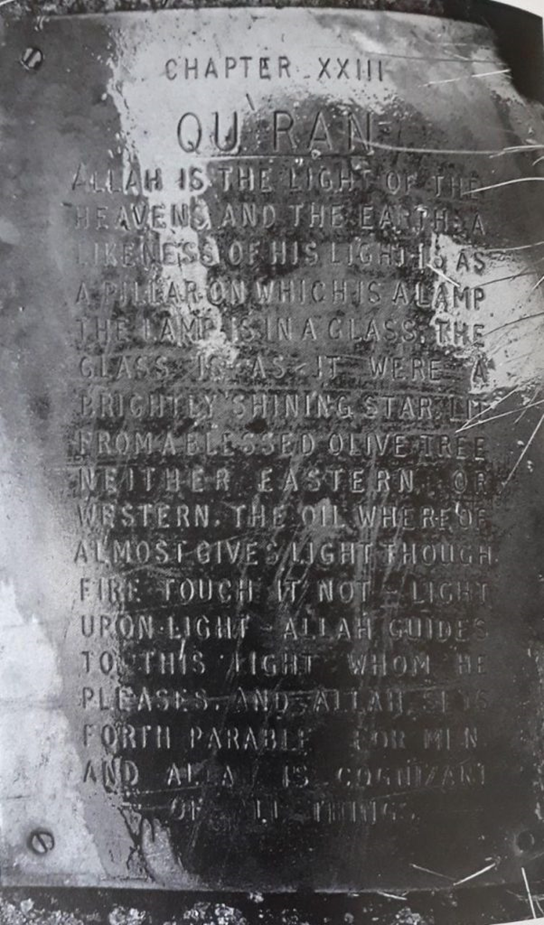 CHAPTER XXIII
QU'RAN
ALLAH IS THE LIGHT OF THE
HEAVENS AND THE EARTH: A
LIKENESS OF HIS LIGHT IS AS
A PILLAR ON WHICH IS A LAMP
THE LAMP IS IN A GLASS, THE
GLASS IS AS IT WERE A
BRIGHTLY SHINING STAR, LIT
FROM A BLESSED OLIVE TREE
NEITHER EASTERN OR
WESTERN. THE OIL WHEREOF
ALMOST GIVES LIGHT THOUGH
FIRE TOUCH IT NOT - LIGHT
UPON LIGHT - ALLAH GUIDES
TO THIS LIGHT WHOM HE
PLEASES. AND ALLAH SETS
FORTH PARABLE FOR MEN
AND ALLA IS COGNIZANT
OF THINGS